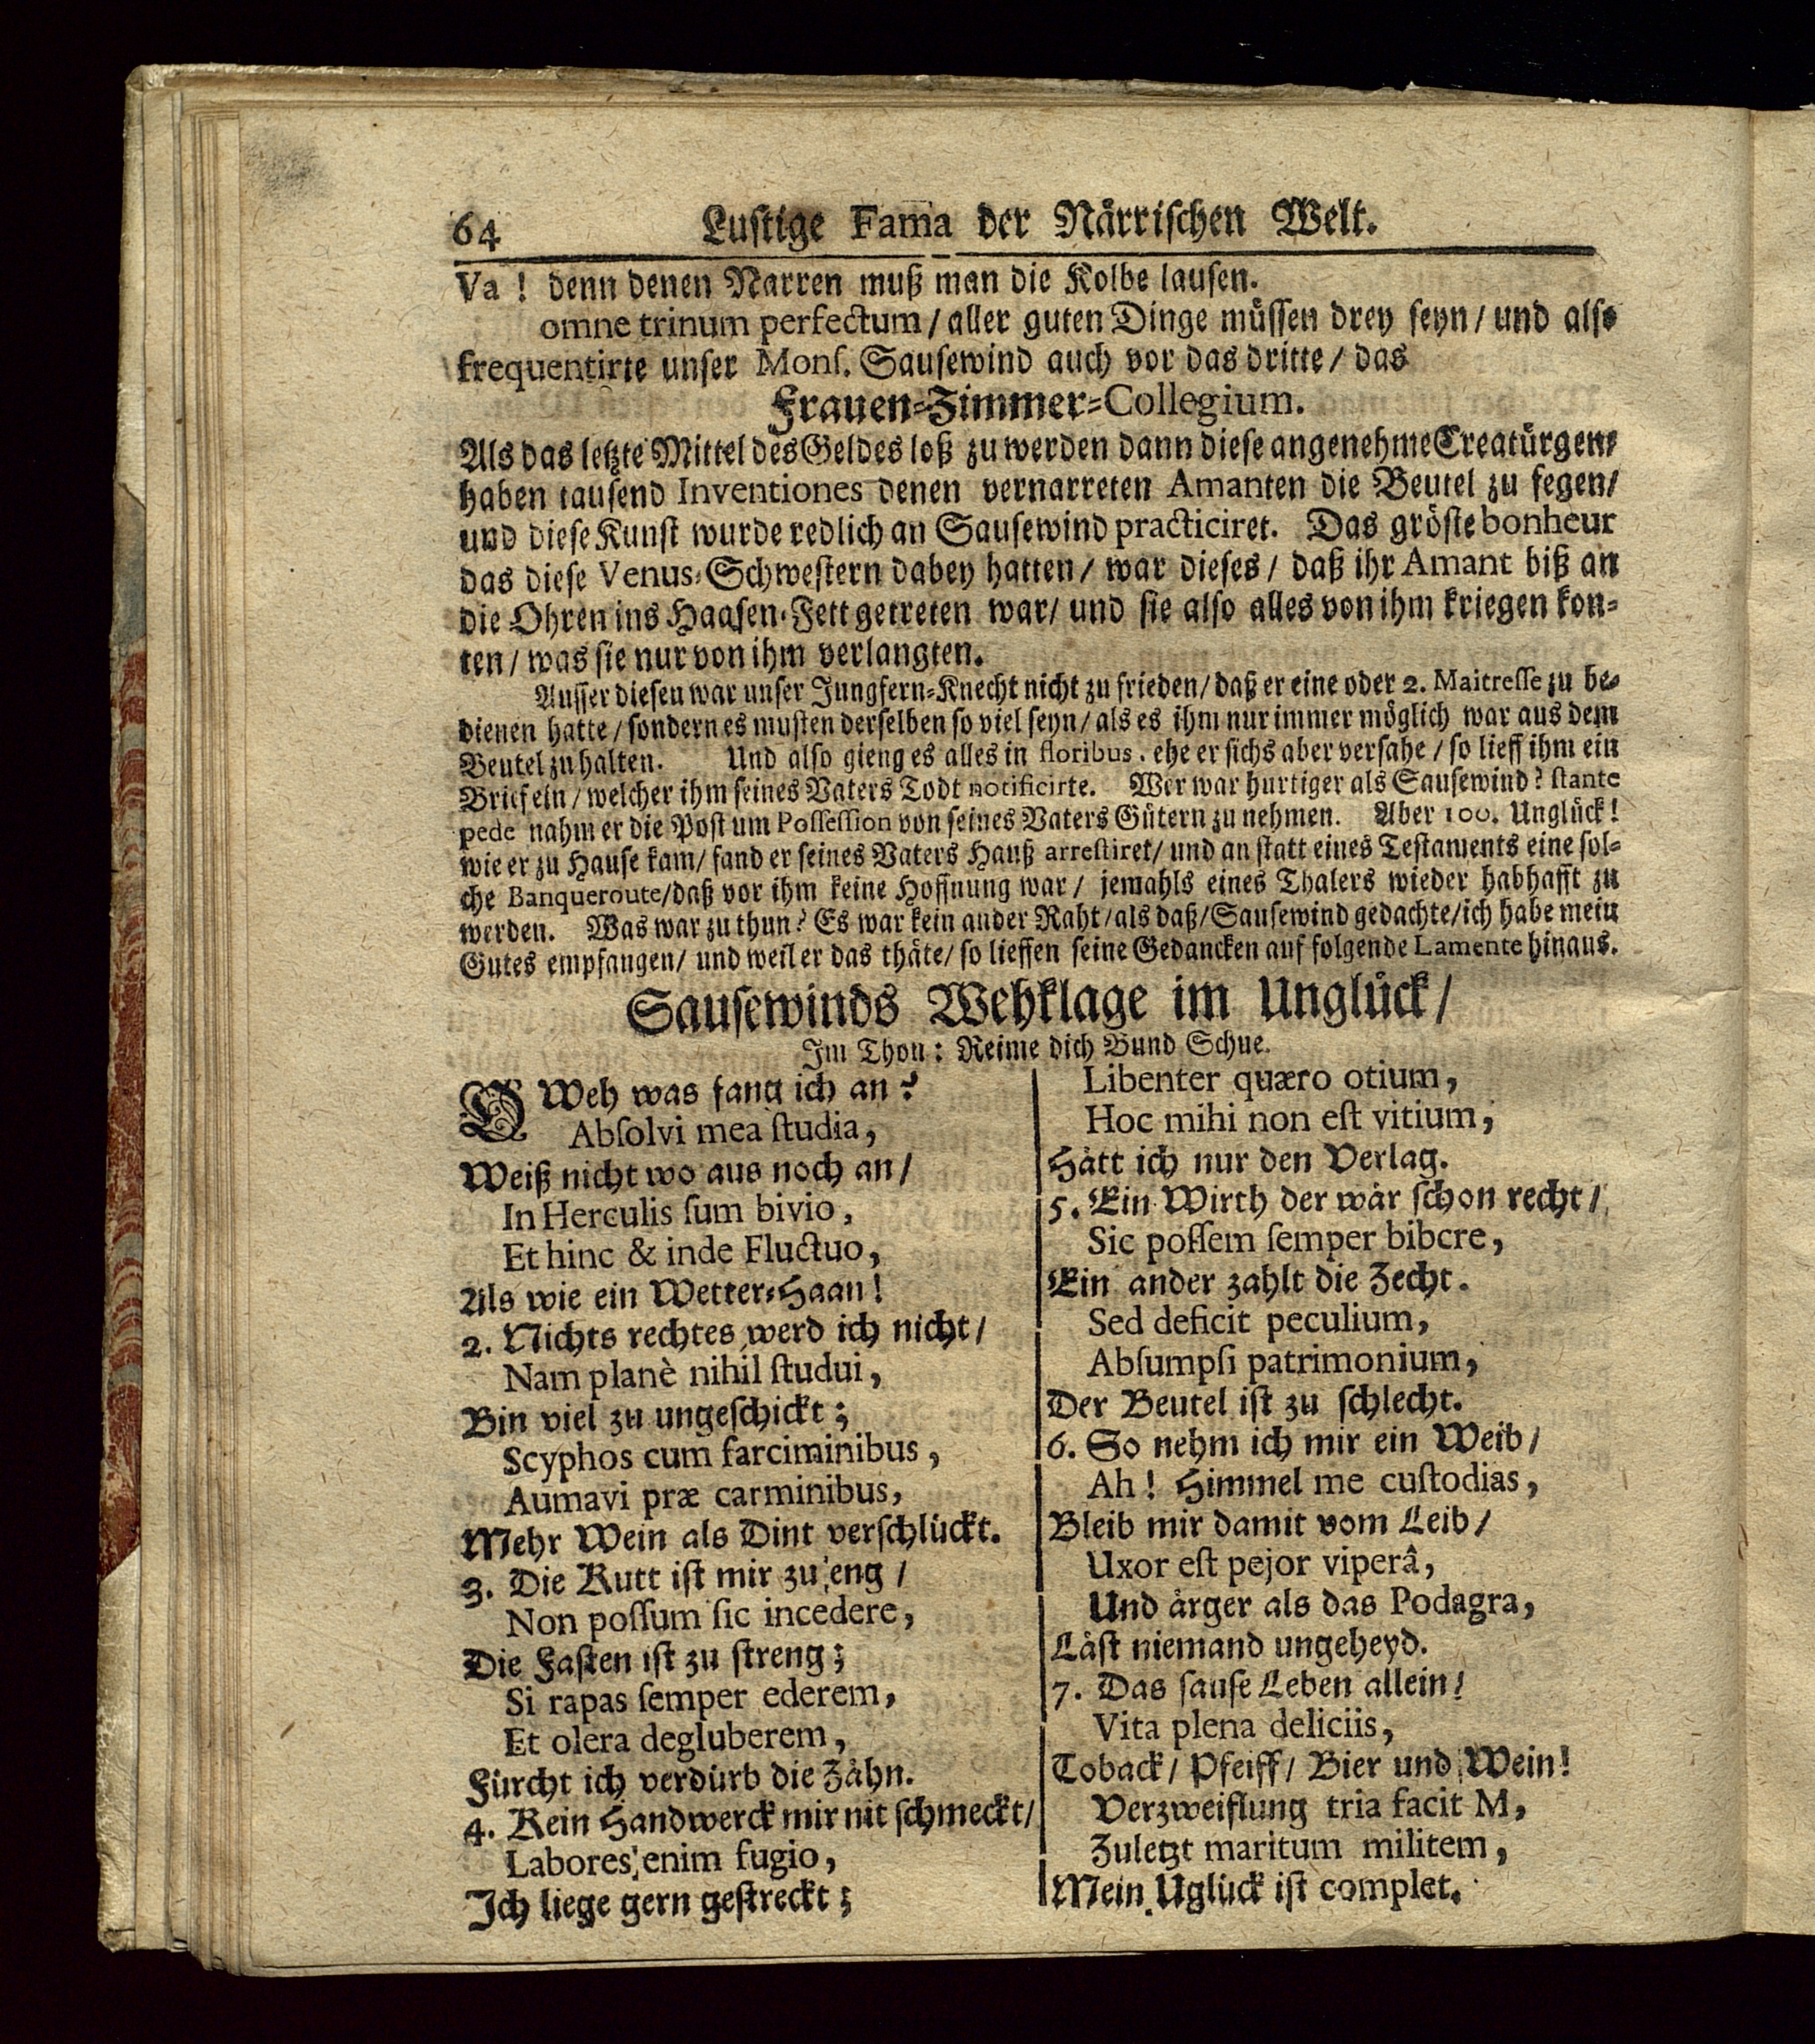 64 Lustige Fama der Närrischen Welt.
Va ! denn denen Narren muß man die Kolbe lausen.
omne trinum perfectum / aller guten Dinge müssen drey seyn / und also
frequentirte unser Mons. Sausewind auch vor das dritte / das
Frauen-Zimmer-Collegium.
Als das letzte Mittel des Geldes loß zu werden dann diese angenehme Creatürgen /
haben tausend Inventiones denen vernarreten Amanten die Beutel zu fegen /
und diese Kunst wurde redlich an Sausewind practiciret. Das gröste bonheur
das diese Venus-Schwestern dabey hatten / war dieses / daß ihr Amant biß an
die Ohren ins Haasen-Fett getreten war / und sie also alles von ihm kriegen kon-
ten / was sie nur von ihm verlangten.
Ausser diesen war unser Jungfern-Knecht nicht zu frieden / daß er eine oder 2. Maitresse zu be-
dienen hatte / sondern es musten derselben so viel seyn / als es ihm nur immer möglich war aus dem
Beutel zu halten. Und also gieng es alles in floribus. ehe er sichs aber versahe / so lieff ihm ein
Brief ein / welcher ihm seines Vaters Todt notificirte. Wer war hurtiger als Sausewind? stante
pede nahm er die Post um Possession von seines Vaters Gütern zu nehmen. Aber 100. Unglück!
wie er zu Hause kam / fand er seines Vaters Hauß arrestiret / und an statt eines Testaments eine sol-
che Banqueroute / daß vor ihm keine Hoffnung war / jemahls eines Thalers wieder habhafft zu
werden. Was war zu thun? Es war kein ander Raht / als daß / Sausewind gedachte / ich habe mein
Gutes empfangen / und weil er das thäte / so lieffen seine Gedancken auf folgende Lamente hinaus.
Sausewinds Wehklage im Unglück /
Im Thon: Reime dich Bund Schue.
O Weh was fang ich an?
Absolvi mea studia,
Weiß nicht wo aus noch an /
In Herculis sum bivio,
Et hinc & inde Fluctuo,
Als wie ein Wetter-Haan!
2. Nichts rechtes werd ich nicht /
Nam planè nihil studui,
Bin viel zu ungeschickt;
Scyphos cum farciminibus,
Aumavi præ carminibus,
Mehr Wein als Dint verschlückt.
3. Die Kutt ist mir zu eng /
Non possum sic incedere,
Die Fasten ist zu streng;
Si rapas semper ederem,
Et olera degluberem,
Fürcht ich verdürb die Zähn.
4. Kein Handwerck mir nit schmeckt /
Labores enim fugio,
Ich liege gern gestreckt;
Libenter quæro otium,
Hoc mihi non est vitium,
Hätt ich nur den Verlag.
5. Ein Wirth der wär schon recht /
Sic possem semper bibere,
Ein ander zahlt die Zecht.
Sed deficit peculium,
Absumpsi patrimonium,
Der Beutel ist zu schlecht.
6. So nehm ich mir ein Weib /
Ah! Himmel me custodias,
Bleib mir damit vom Leib /
Uxor est pejor viperâ,
Und ärger als das Podagra,
Läst niemand ungeheyd.
7. Das sause Leben allein /
Vita plena deliciis,
Toback / Pfeiff / Bier und Wein!
Verzweiflung tria facit M,
Zuletzt maritum militem,
Mein Uglück ist complet.